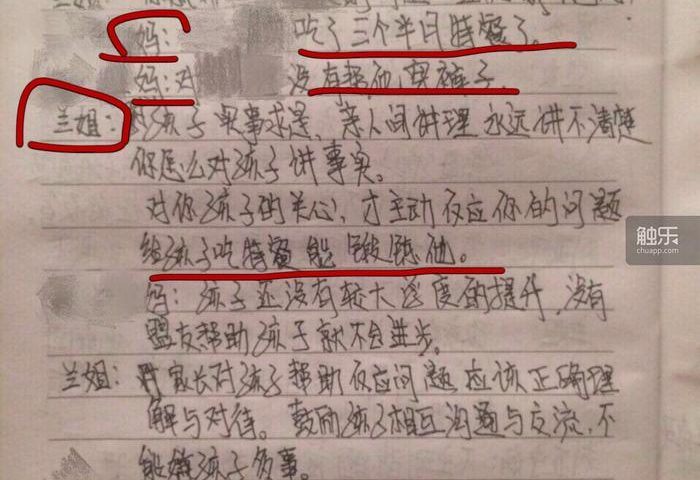 妈： 吃了三个半月特餐了。
妈：对 没有帮他 裤子
兰姐：对孩子实事求是，亲人间讲理永远讲不清楚
你怎么对孩子讲事实。
对你孩子的关心，才主动反应你的问题
给孩子吃特餐能锻炼他。
妈：孩子还没有较大幅度的提升，没有
盟友帮助孩子就不会进步。
兰姐：对家长对孩子帮助反应问题应该正确理
解与对待。鼓励孩子相互沟通与交流，不
能嫌孩子多事。
触乐
chuapp.com